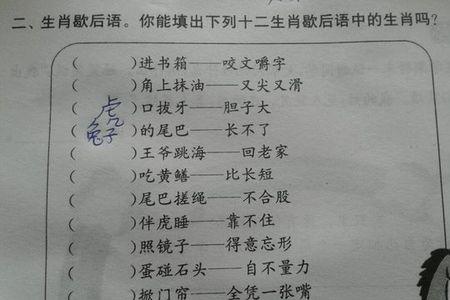 二、生肖歇后语。你能填出下列十二生肖歇后语中的生肖吗?
(　　)进书箱——咬文嚼字
(　　)角上抹油——又尖又滑
(虎)口拔牙——胆子大
(兔子)的尾巴——长不了
(　　)王爷跳海——回老家
(　　)吃黄鳝——比长短
(　　)尾巴搓绳——不合股
(　　)伴虎睡——靠不住
(　　)照镜子——得意忘形
(　　)蛋碰石头——自不量力
(　　)掀门帘——全凭一张嘴